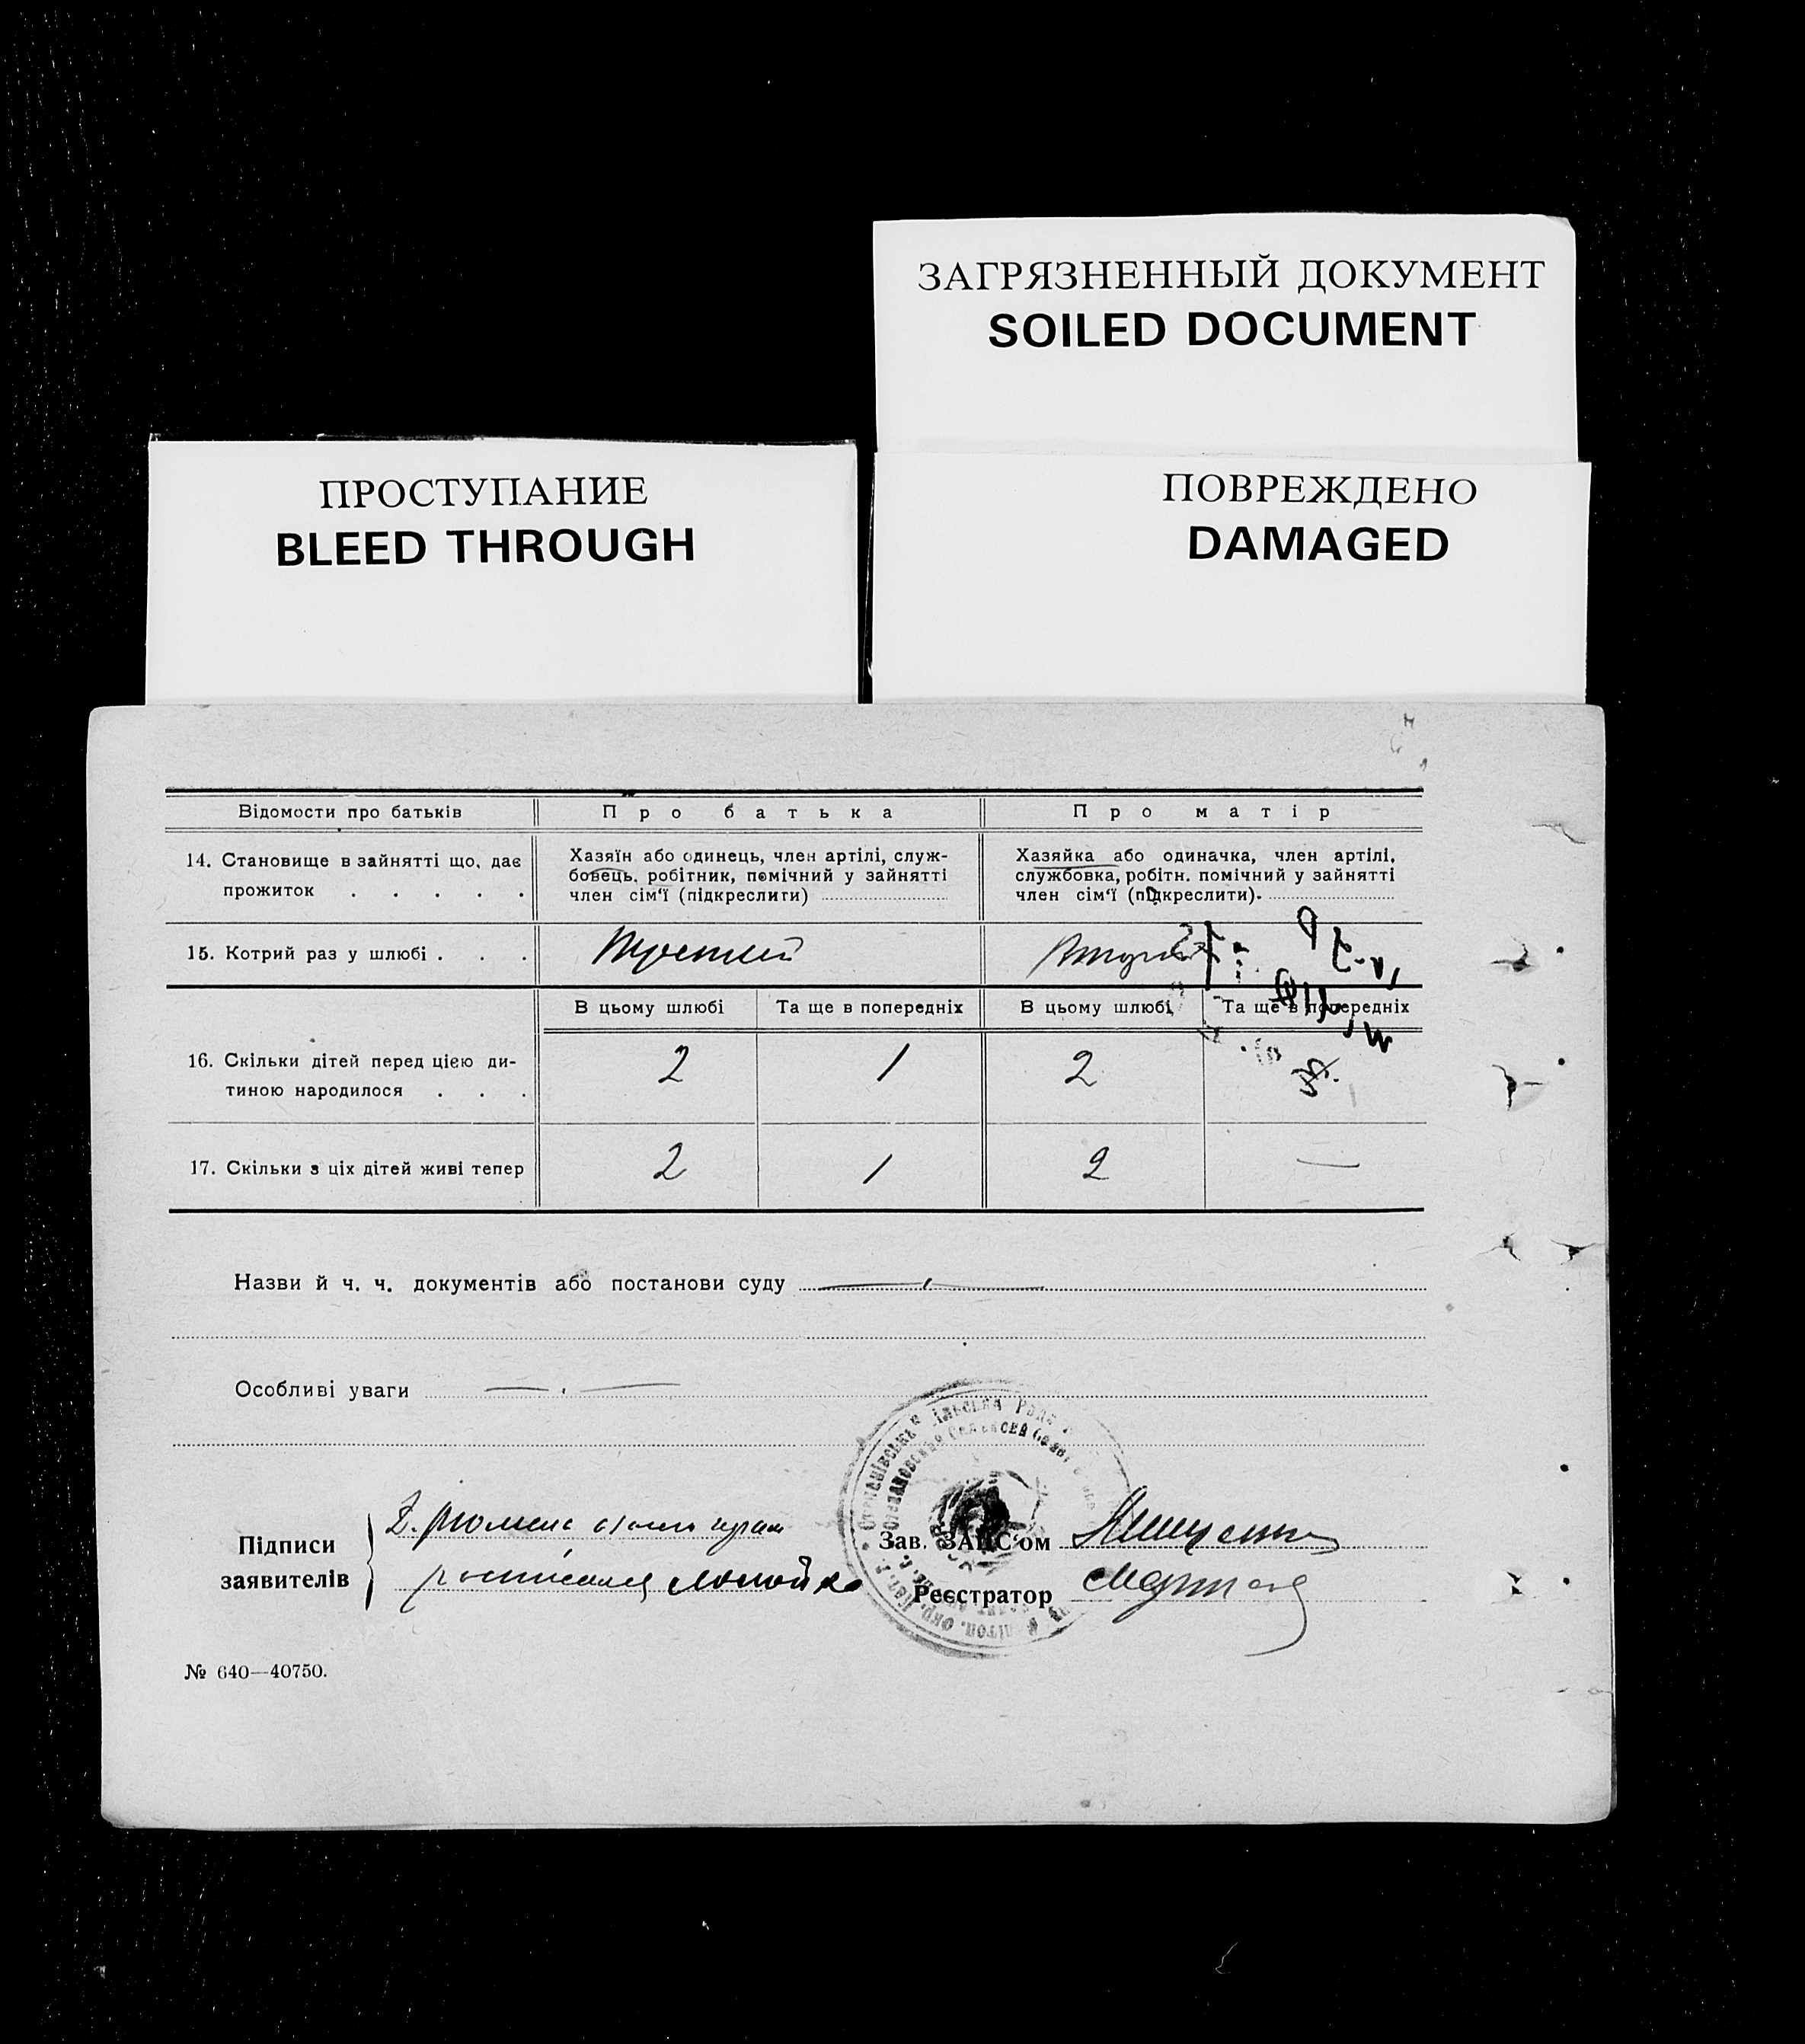 ЗАГРЯЗНЕННЫЙ ДОКУМЕНТ
SOILED DOCUMENT
ПРОСТУПАНИЕ
BLEED THROUGH
ПОВРЕЖДЕНО
DAMAGED
Відомости про батьків
Про батька
Про матір
14. Становище в зайнятті що, дає
прожиток . . . . .
Хазяїн або одинець, член артілі, служ-
бовець, робітник, помічний у зайнятті
член сім'ї (підкреслити)
Хазяйка або одиначка, член артілі,
службовка, робітн. помічний у зайнятті
член сім'ї (підкреслити).
15. Котрий раз у шлюбі . . .
третій
В цьому шлюбі
Та ще в попередніх
В цьому шлюбі
Та ще в попередніх
16. Скільки дітей перед цією ди-
тиною народилося . . .
2
1
2
17. Скільки з ціх дітей живі тепер
2
1
2
—
Назви й ч. ч. документів або постанови суду
Особливі уваги
Підписи
заявителів
Зав. ЗАПС'ом
Реєстратор
№ 640—40750.